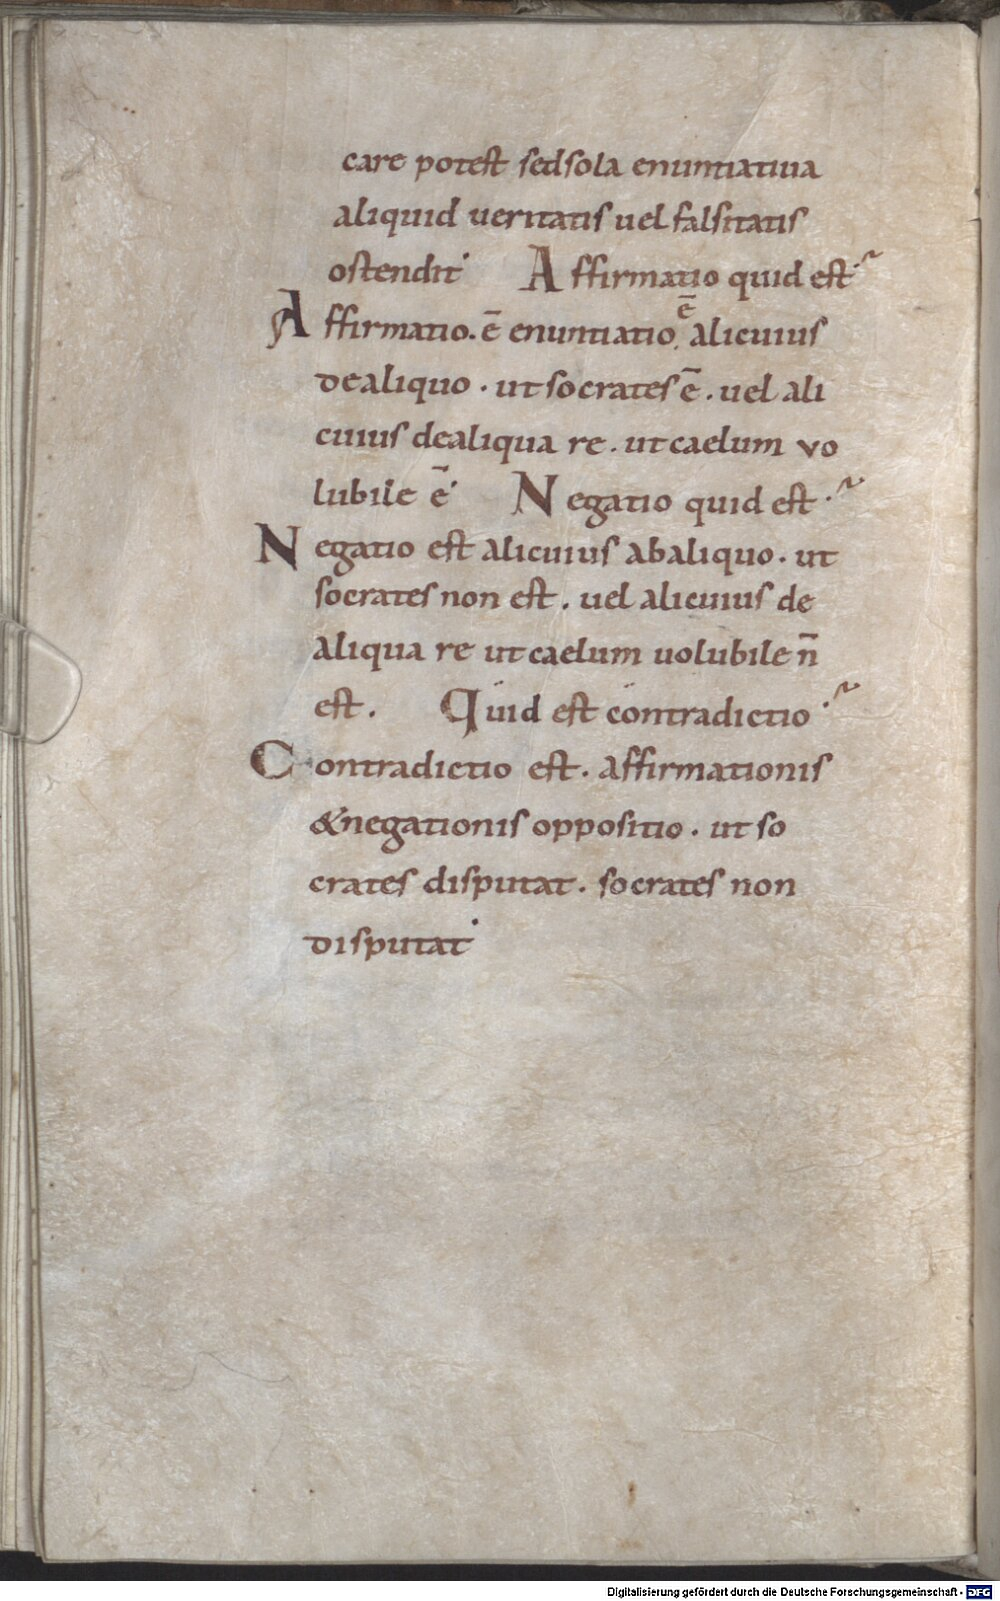 care potest sedsola enuntiatiua
aliquid ueritatis uel falsitatis
ostendit· Affirmatio quid est·~
Affirmatio. ē enuntiatio, ē alicuius
dealiquo · ut socrates ē . uel ali
cuius dealiqua re . ut caelum vo
lubile ē· Negatio quid est·~
Negatio est alicuius abaliquo · ut
socrates non est . uel alicuius de
aliqua re ut caelum uolubile n̄
est . Quid est contradictio ·~
Contradictio est . affirmationis
&negationis oppositio . ut so
crates disputat . socrates non
disputat·
Digitalisierung gefördert durch die Deutsche Forschungsgemeinschaft - DFG